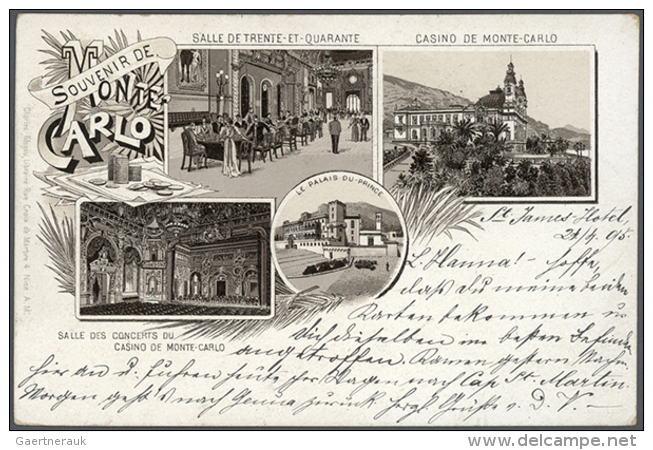 SOUVENIR DE
MONTE-
CARLO
SALLE DE TRENTE-ET-QUARANTE
CASINO DE MONTE-CARLO
LE PALAIS DU PRINCE
SALLE DES CONCERTS DU
CASINO DE MONTE-CARLO
St. James-Hotel,
24/4. 95.
L. Hanna! - hoffe,
daß du meine beiden
Karten bekommen u.
Dich dieselben im besten Befinden
angetroffen. Kamen gestern Nachm.
hier an u. fuhren heute per Wagen nach Cap St. Martin.
Morgen geht's nach Genua zurück. Herzl. Grüße v. D. V. -
Gaertnerauk
delcampe.net